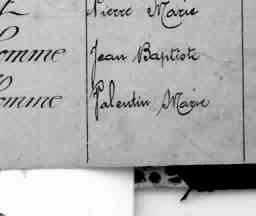 Pierre Marie
omme Jean Baptiste
omme Valentin Marie